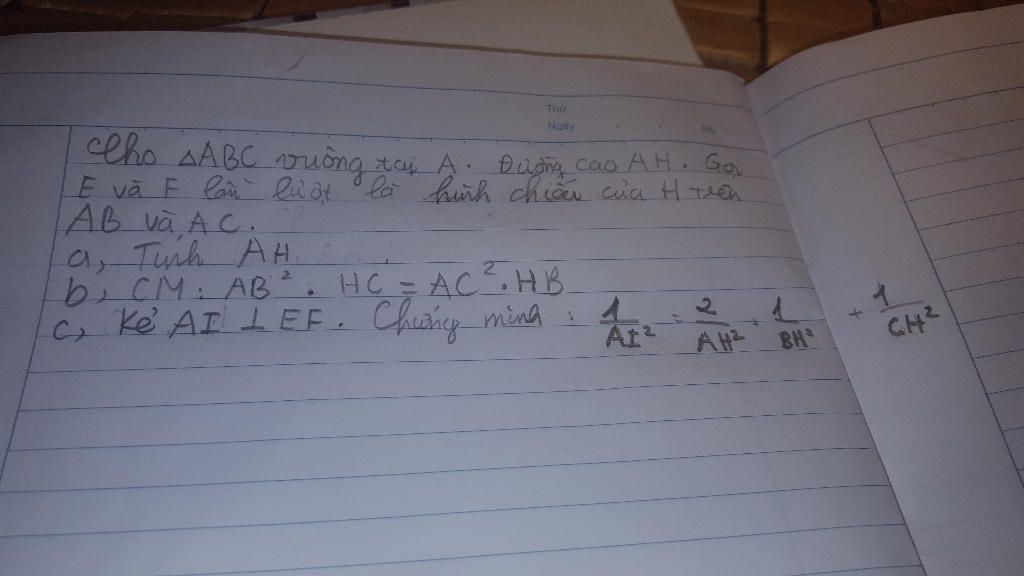 Thứ
Ngày No.
Cho △ABC vuông tại A. Đường cao AH. Gọi
E và F lần lượt là hình chiếu của H trên
AB và AC.
a, Tính AH
b, CM: AB². HC = AC². HB
c, Kẻ AI ⊥ EF. Chứng minh: 1/AI² = 2/AH² + 1/BH² + 1/CH²